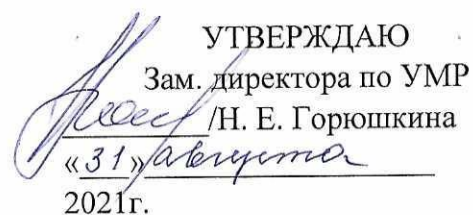 УТВЕРЖДАЮ
Зам. директора по УМР
/Н. Е. Горюшкина
«31» августа
2021г.